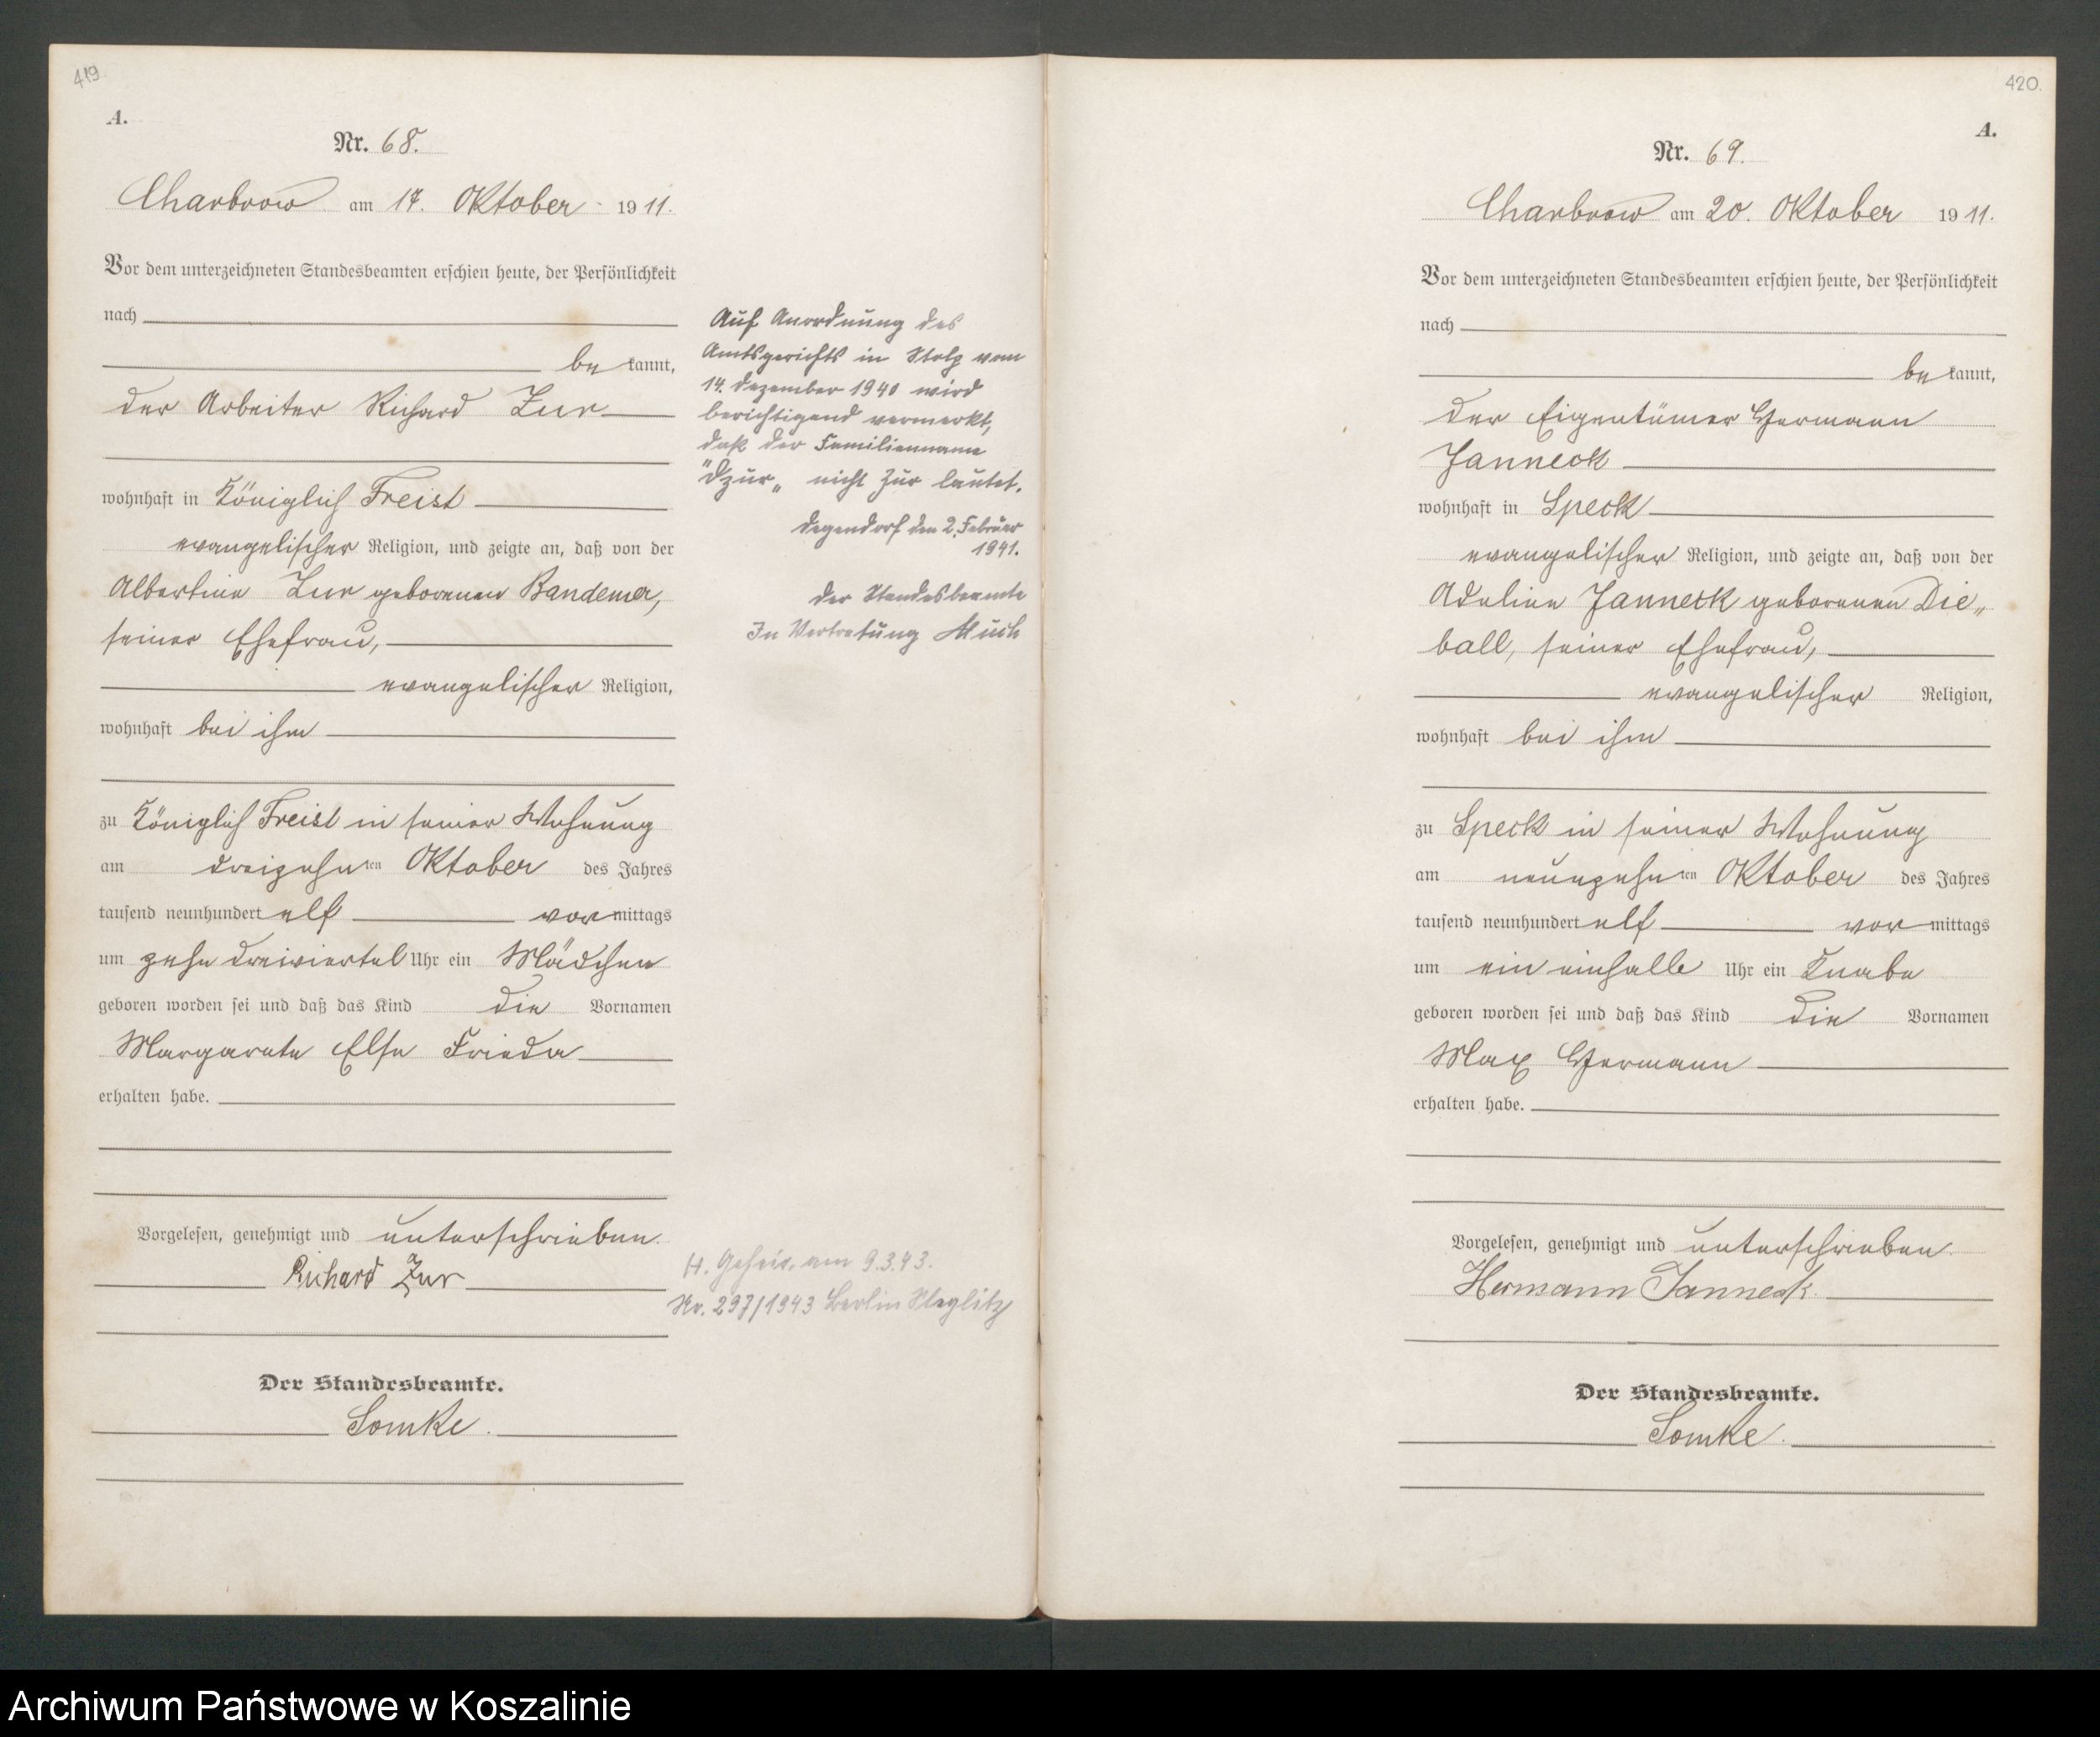 419.
A.
Nr. 68.
Charbrow am 17. Oktober 1911.
Vor dem unterzeichneten Standesbeamten erschien heute, der Persönlichkeit
nach
be kannt,
der Arbeiter Richard Zur
wohnhaft in Königlich Freist
evangelischer Religion, und zeigte an, daß von der
Albertine Zur geborenen Bandemer,
seiner Ehefrau,
evangelischer Religion,
wohnhaft bei ihm
zu Königlich Freist in seiner Wohnung
am dreizehnten Oktober des Jahres
tausend neunhundert elf vormittags
um zehn dreiviertel Uhr ein Mädchen
geboren worden sei und daß das Kind die Vornamen
Margarete Else Frieda
erhalten habe.
Vorgelesen, genehmigt und unterschrieben.
Richard Zur
Der Standesbeamte.
Somke.
Auf Anordnung des
Amtsgerichts in Stolp vom
14. Dezember 1940 wird
berichtigend vermerkt,
daß der Familienname
"Dzur„ nicht Zur lautet.
Degendorf den 2. Februar
1941.
Der Standesbeamte
In Vertretung Much
H. Geheir. am 9.3.43.
Nr. 297/1943 Berlin Steglitz
420.
A.
Nr. 69.
Charbrow am 20. Oktober 1911.
Vor dem unterzeichneten Standesbeamten erschien heute, der Persönlichkeit
nach
be kannt,
der Eigentümer Hermann
Janneck
wohnhaft in Speck
evangelischer Religion, und zeigte an, daß von der
Adeline Janneck geborenen Die„
ball, seiner Ehefrau,
evangelischer Religion,
wohnhaft bei ihm
zu Speck in seiner Wohnung
am neunzehnten Oktober des Jahres
tausend neunhundert elf vormittags
um ein einhalb Uhr ein Knabe
geboren worden sei und daß das Kind die Vornamen
Max Hermann
erhalten habe.
Vorgelesen, genehmigt und unterschrieben.
Hermann Janneck.
Der Standesbeamte.
Somke.
Archiwum Państwowe w Koszalinie